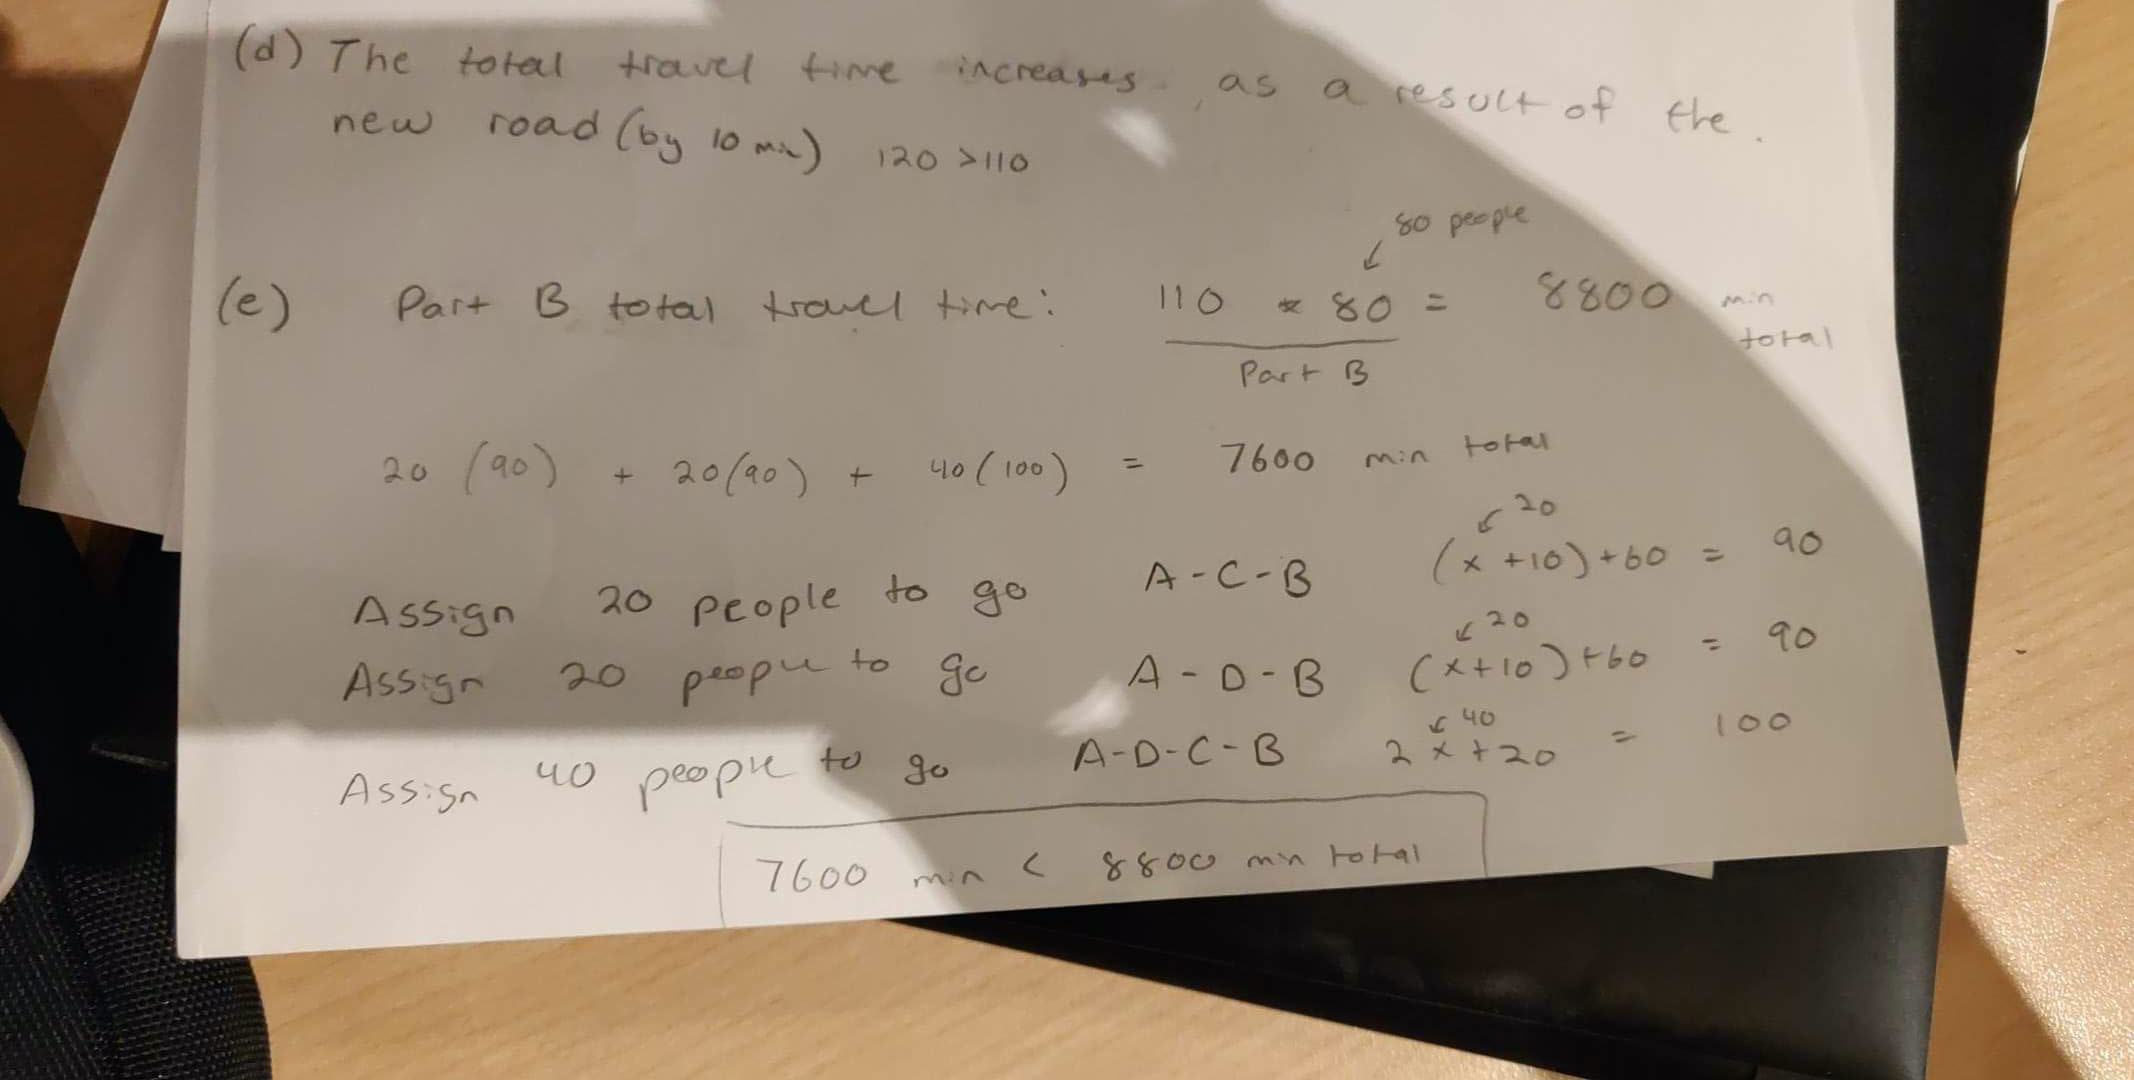 (d) The total travel time increases, as a result of the.
new road (by 10 min) 120 > 110
80 people
(e) Part B total travel time: 110 * 80 = 8800 min
total
Part B
20 (90) + 20(90) + 40(100) = 7600 min total
20
Assign 20 people to go A-C-B (x+10)+60 = 90
20
Assign 20 people to go A-D-B (x+10)+60 = 90
40
Assign 40 people to go A-D-C-B 2x+20 = 100
7600 min < 8800 min total